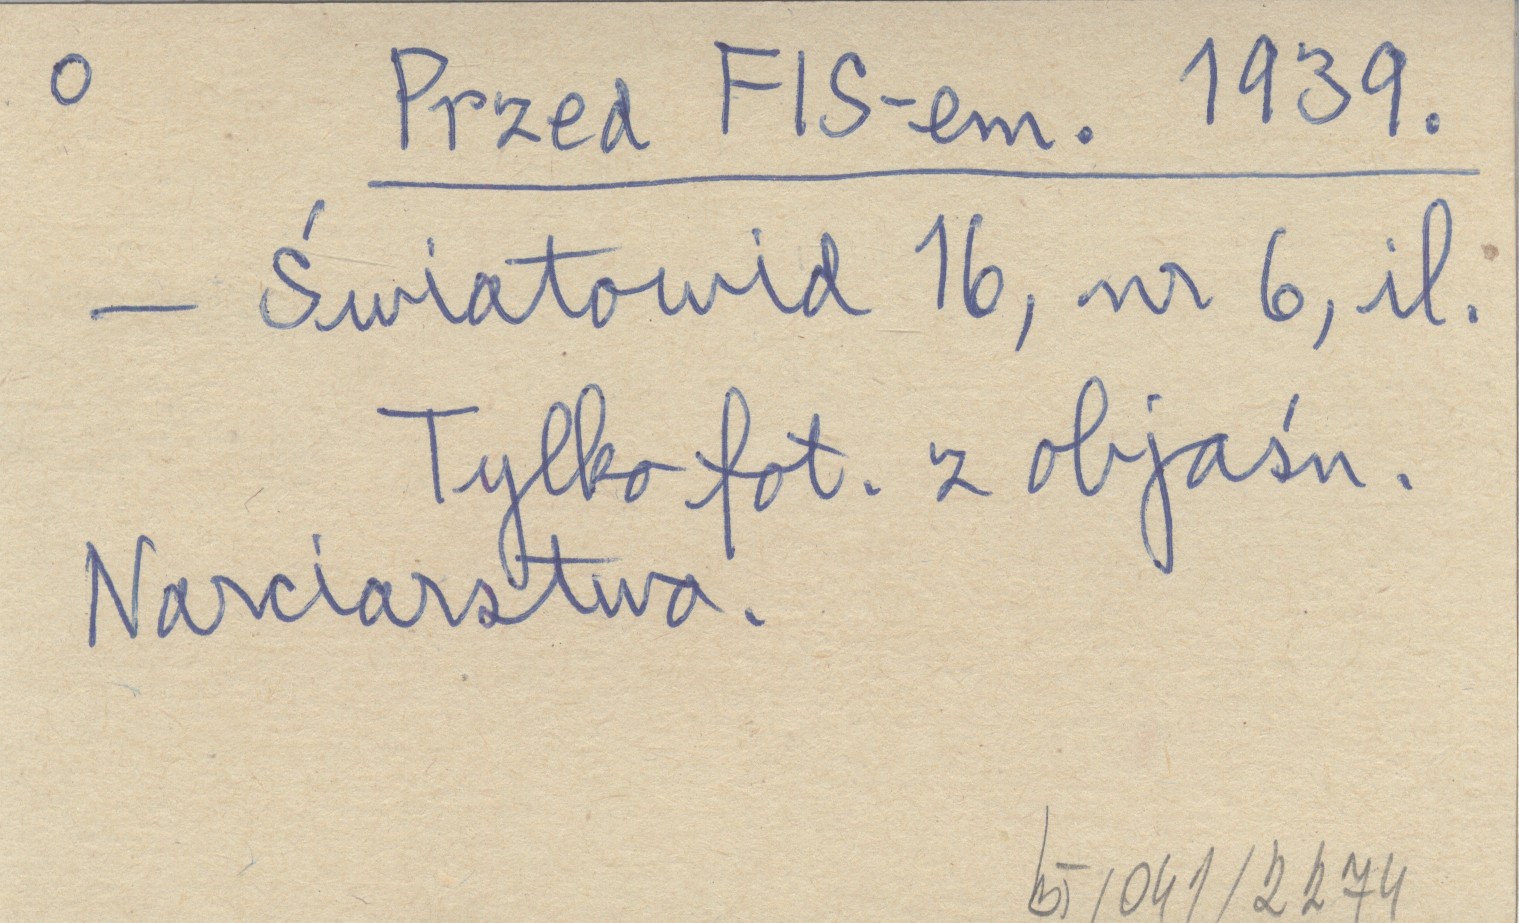 o Przed FIS-em. 1939.
— Światowid 16, nr 6, il.
Tylko fot. z objaśn.
Narciarstwo.
/041/2274